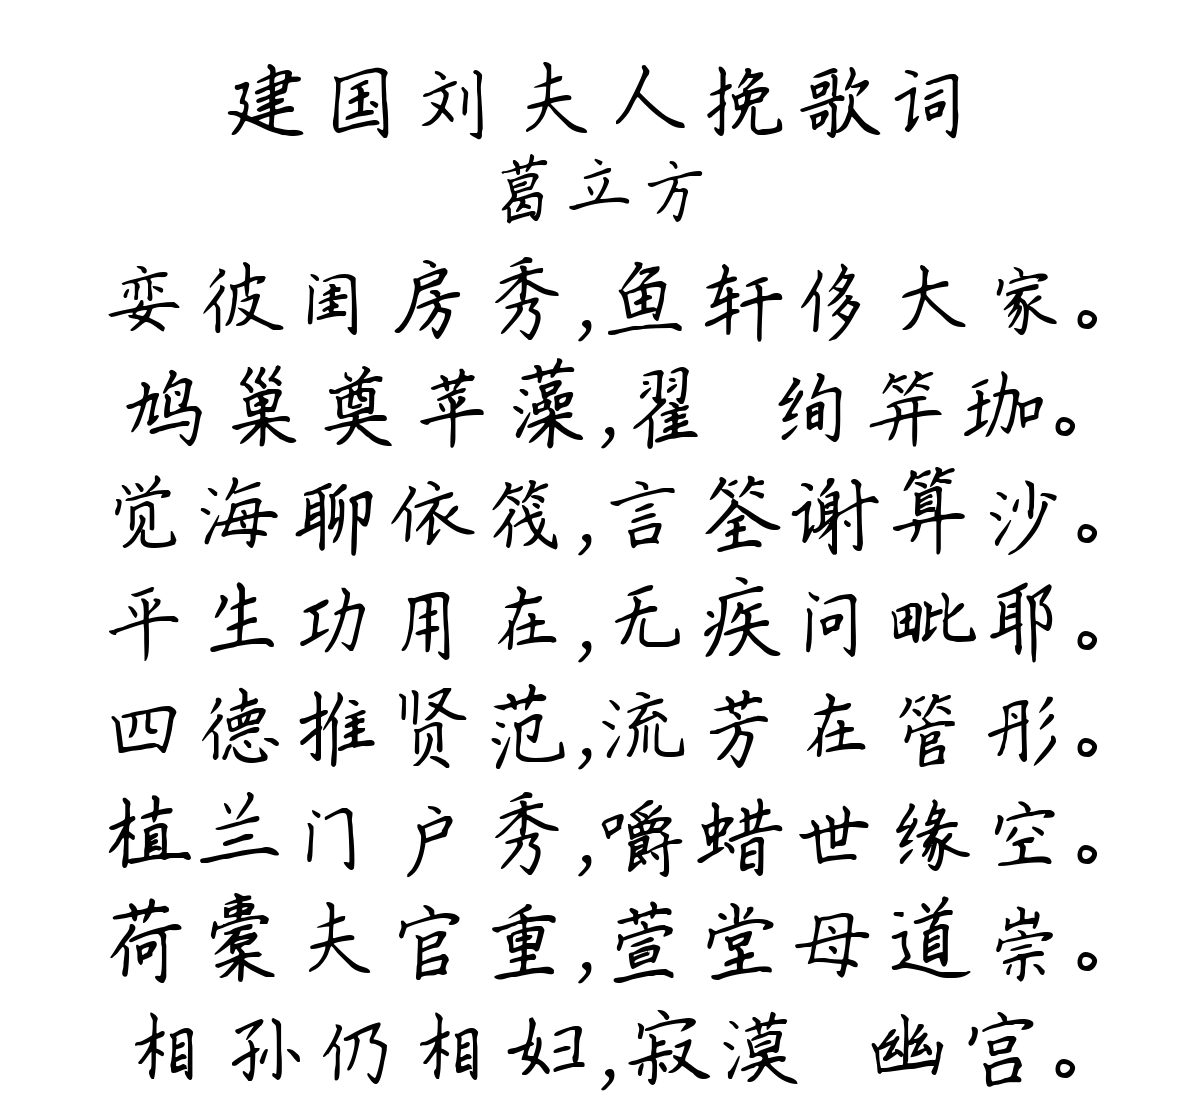 建国刘夫人挽歌词
葛立方
娈彼闺房秀,鱼轩侈大家。
鸠巢奠苹藻,翟 绚笄珈。
觉海聊依筏,言筌谢算沙。
平生功用在,无疾问毗耶。
四德推贤范,流芳在管彤。
植兰门户秀,嚼蜡世缘空。
荷橐夫官重,萱堂母道崇。
相孙仍相妇,寂漠 幽宫。